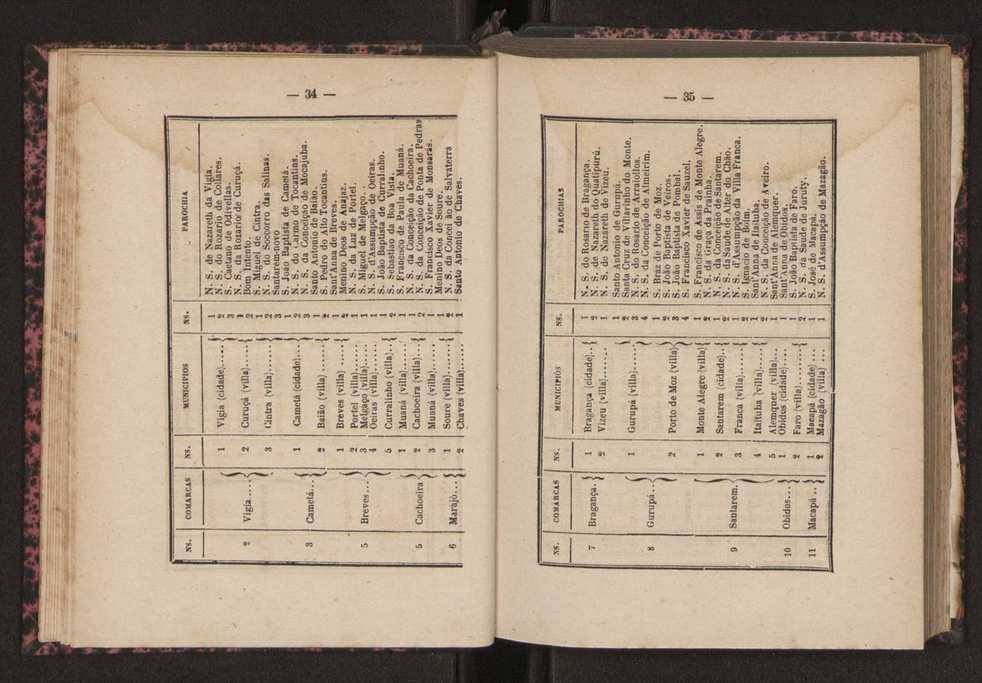 — 34 —
NS. COMARCAS NS. MUNICIPIOS NS. PAROCHIA
2 Vigia.... 1 Vigia (cidade).... 1 N. S. de Nazareth da Vigia.
2 N. S. do Rozario de Collares.
3 S. Caetano de Odivellas.
2 Curuçá (villa).... 1 N. S. do Rozario de Curuçá.
2 Bom Intento.
3 Cintra (villa)..... 1 S. Miguel de Cintra.
2 N. S. do Soccorro das Salinas.
3 Santarem-novo
3 Cametá... 1 Cametá (cidade)... 1 S. João Baptista de Cametá.
2 N. S. do Carmo de Tocantins.
3 N. S. da Conceição de Mocajuba.
2 Baião (villa) ..... 1 Santo Antonio de Baião.
2 S. Pedro do Alto Tocantins.
5 Breves... 1 Breves (villa) .... 1 Sant'Anna de Breves.
2 Menino Deos de Anajaz.
2 Portel (villa)...... 1 N. S. da Luz de Portel.
3 Melgaço (villa).... 1 S. Miguel de Melgaço.
4 Oeiras (villa)..... 1 N. S. d'Assumpção de Oeiras.
5 Curralinho (villa).. 1 S. João Baptista de Curralinho.
2 S. Sebastião da Boa Vista.
5 Cachoeira 1 Muaná (villa)..... 1 S. Francisco de Paula de Muaná.
2 Cachoeira (villa).. 1 N. S. da Conceição da Cachoeira.
2 N. S. da Conceição de Ponta de Pedras
3 Muaná (villa)..... 1 S. Francisco Xavier de Monsarás.
6 Marajó... 1 Soure (villa)...... 1 Menino Deos de Soure.
2 N. S. da Conceição de Salvaterra
2 Chaves (villa)..... 1 Santo Antonio de Chaves.
— 35 —
NS. COMARCAS NS. MUNICIPIOS NS. PAROCHIAS
7 Bragança. 1 Bragança (cidade).. 1 N. S. do Rosario de Bragança.
2 N. S. de Nazareth do Quatipurú.
2 Vizeu (villa)...... 1 N. S. do Nazareth do Vizeu.
8 Gurupá... 1 Gurupá (villa)..... 1 Santo Antonio de Gurupá.
2 Santa Cruz de Villarinho do Monte.
3 N. S. do Rosario de Arraiollos.
4 N. S. da Conceição de Almeirim.
2 Porto de Moz (villa) 1 S. Braz de Porto de Moz.
2 S. João Baptista de Veiros.
3 S. João Baptista de Pombal.
4 S. Francisco Xavier de Sauzel.
9 Santarem. 1 Monte Alegre (villa) 1 S. Francisco de Assis de Monte Alegre.
2 N. S. da Graça Prainha.
2 Santarem (cidade).. 1 N. S. da Conceição de Santarem.
2 N. S. da Saude de Alter do Chão.
3 Franca (villa)..... 1 N. S. d'Assumpção da Villa Franca.
2 S. Ignacio de Boim.
4 Itaituba (villa).... 1 Sant'Anna de Itaituba.
2 N. S. da Conceição de Aveiro.
5 Alemquer (villa)... 1 Sant'Anna de Alemquer.
10 Obidos... 1 Obidos (cidade).... 1 Sant'Anna de Obidos.
2 Faro (villa)....... 1 S. João Baptista de Faro.
2 N. S. da Saude de Juruty.
11 Macapá .. 1 Macapá (cidade) ... 1 S. José de Macapá.
2 Mazagão (villa) ... 1 N. S. d'Assumpção de Mazagão.